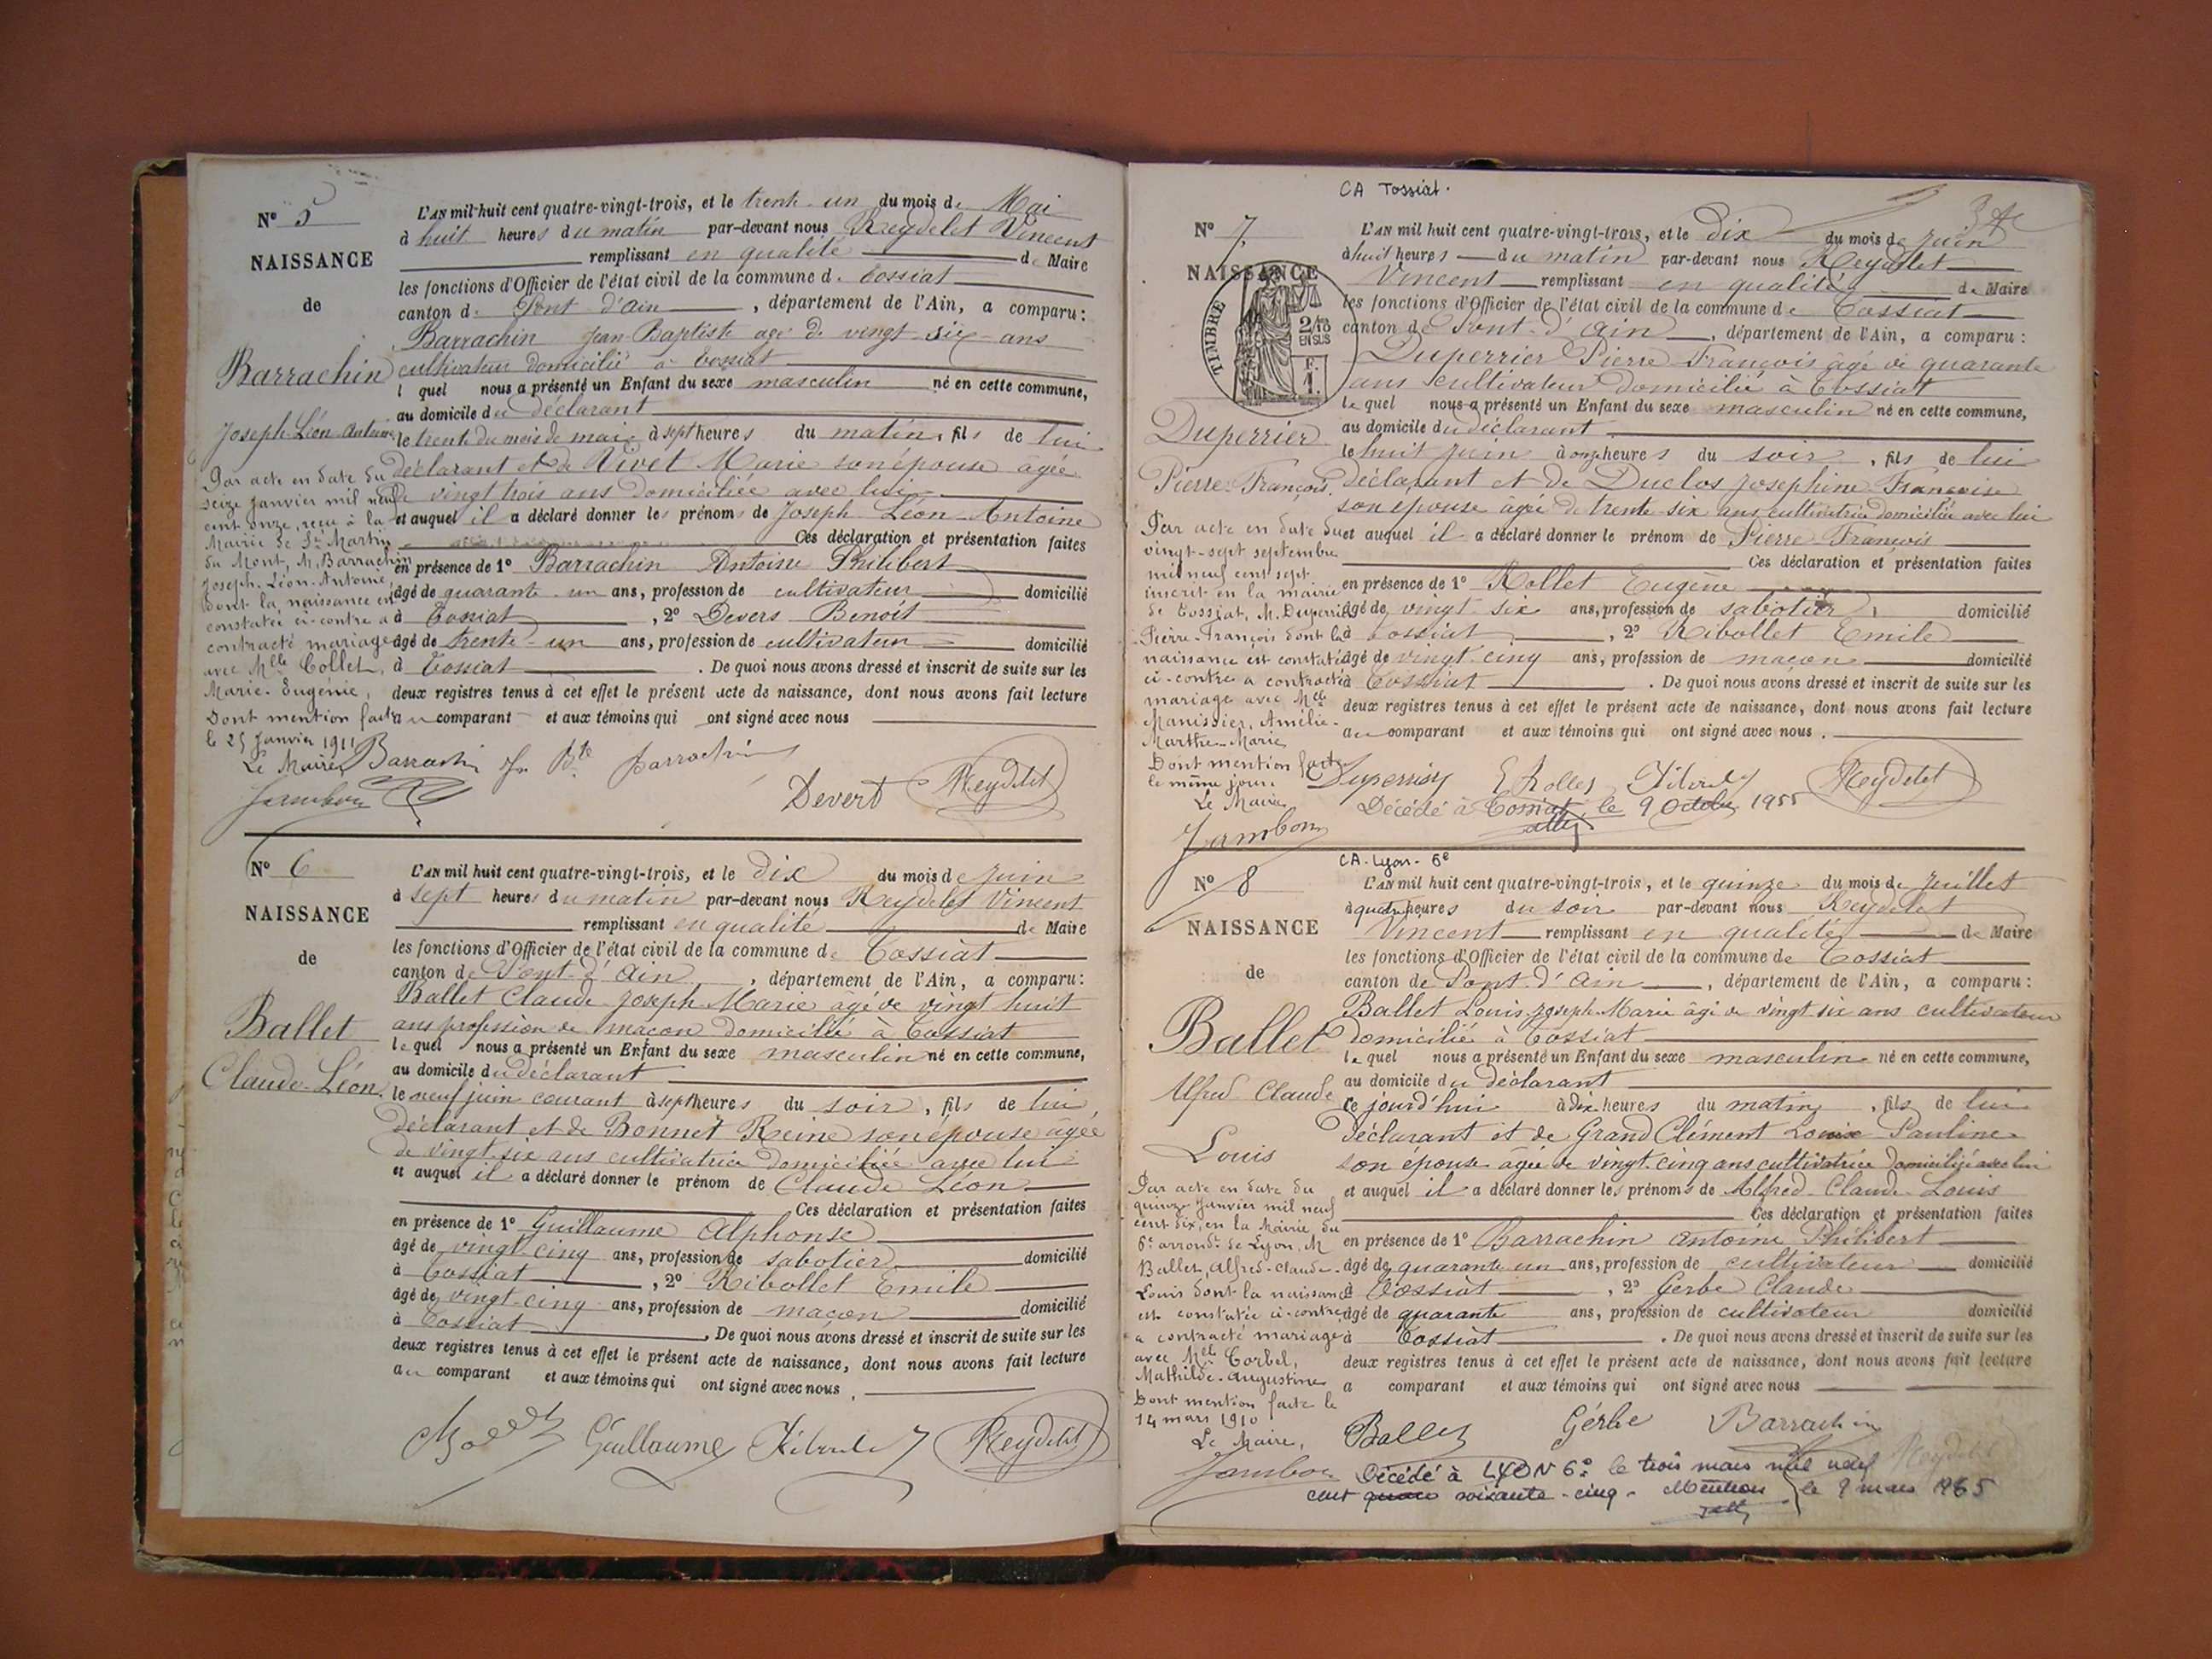 N° 5
NAISSANCE
de
Barrachin
Joseph Léon Antoine
Par acte en date du
seize janvier mil neuf
cent onze, reçu à la
Mairie de St Martin
du Mont, M. Barrachin
Joseph-Léon-Antoine,
dont la naissance est
constatée ci-contre a
contracté mariage
avec Mlle Collet,
Marie-Eugénie,
Dont mention faite
le 25 Janvier 1911
Le Maire,
Jambon
L'AN mil huit cent quatre-vingt-trois, et le trente un du mois de Mai
à huit heures du matin par-devant nous Reydelet Vincent
remplissant en qualité de Maire
les fonctions d'Officier de l'état civil de la commune de Tossiat
canton de Pont d'Ain, département de l'Ain, a comparu:
Barrachin Jean Baptiste agé de vingt-six ans
cultivateur domicilié à Tossiat
lequel nous a présenté un Enfant du sexe masculin né en cette commune,
au domicile du déclarant
le trente du mois de mai à sept heures du matin, fils de lui
déclarant et de Vivet Marie son épouse âgée
de vingt trois ans domiciliée avec lui
et auquel il a déclaré donner les prénoms de Joseph Léon Antoine
Ces déclaration et présentation faites
en présence de 1° Barrachin Antoine Philibert
âgé de quarante un ans, profession de cultivateur domicilié
à Tossiat, 2° Devers Benoit
âgé de trente-un ans, profession de cultivateur domicilié
à Tossiat. De quoi nous avons dressé et inscrit de suite sur les
deux registres tenus à cet effet le présent acte de naissance, dont nous avons fait lecture
au comparant et aux témoins qui ont signé avec nous
Barrachin Jn Bte Barrachin
Devert Reydelet
N° 6
NAISSANCE
de
Ballet
Claude-Léon
L'AN mil huit cent quatre-vingt-trois, et le Dix du mois de Juin
à sept heures du matin par-devant nous Reydelet Vincent
remplissant en qualité de Maire
les fonctions d'Officier de l'état civil de la commune de Tossiat
canton de Pont-d'Ain, département de l'Ain, a comparu:
Ballet Claude-Joseph-Marie âgé de vingt huit
ans profession de maçon domicilié à Tossiat
lequel nous a présenté un Enfant du sexe masculin né en cette commune,
au domicile du déclarant
le neuf juin courant à sept heures du soir, fils de lui,
déclarant et de Bonnet Reine son épouse agée
de vingt-six ans cultivatrice domiciliée avec lui
et auquel il a déclaré donner le prénom de Claude Léon
Ces déclaration et présentation faites
en présence de 1° Guillaume Alphonse
âgé de vingt-cinq ans, profession de sabotier domicilié
à Tossiat, 2° Ribollet Emile
âgé de vingt-cinq ans, profession de maçon domicilié
à Tossiat. De quoi nous avons dressé et inscrit de suite sur les
deux registres tenus à cet effet le présent acte de naissance, dont nous avons fait lecture
au comparant et aux témoins qui ont signé avec nous.
Guillaume Reydelet
CA Tossiat.
N° 7
NAISSANCE
TIMBRE
2/10
EN SUS
F.
1.
Duperrier
Pierre-François.
Par acte en date du
vingt-sept septembre
mil neuf cent sept
inscrit en la mairie
de Tossiat, M. Duperrier
Pierre-François dont la
naissance est constatée
ci-contre a contracté
mariage avec Mlle
Manissier, Amélie-
Marthe-Marie
Dont mention faite
le même jour.
Le Maire
Jambon
L'AN mil huit cent quatre-vingt-trois, et le Dix du mois de Juin
à huit heures du matin par-devant nous Reydelet
Vincent remplissant en qualité de Maire
les fonctions d'Officier de l'état civil de la commune de Tossiat
canton de Pont-d'Ain, département de l'Ain, a comparu:
Duperrier Pierre François âgé de quarante
ans cultivateur domicilié à Tossiat
lequel nous a présenté un Enfant du sexe masculin né en cette commune,
au domicile du déclarant
le huit juin à onze heures du soir, fils de lui
déclarant et de Duclos Josephine Françoise
son épouse âgée de trente-six ans cultivatrice domiciliée avec lui
et auquel il a déclaré donner le prénom de Pierre François
Ces déclaration et présentation faites
en présence de 1° Rollet Eugène
âgé de vingt six ans, profession de sabotier domicilié
à Tossiat, 2° Ribollet Emile
âgé de vingt cinq ans, profession de maçon domicilié
à Tossiat. De quoi nous avons dressé et inscrit de suite sur les
deux registres tenus à cet effet le présent acte de naissance, dont nous avons fait lecture
au comparant et aux témoins qui ont signé avec nous.
Duperrier E Rollet Reydelet
Décédé à Tossiat, le 9 Octobre 1955
CA-Lyon-6e
N° 8
NAISSANCE
de
Ballet
Alfred Claude
Louis
Par acte en date du
quinze Janvier mil neuf
cent dix, en la Mairie du
6e arrondt de Lyon, M
Ballet, Alfred-Claude-
Louis dont la naissance
est constatée ci-contre
a contracté mariage
avec Mlle Corbel,
Mathilde-Augustine
Dont mention faite le
14 mars 1910
Le Maire,
Jambon
L'AN mil huit cent quatre-vingt-trois, et le quinze du mois de Juillet
à quatre heures du soir par-devant nous Reydelet
Vincent remplissant en qualité de Maire
les fonctions d'Officier de l'état civil de la commune de Tossiat
canton de Pont d'Ain, département de l'Ain, a comparu:
Ballet Louis Joseph Marie âgé de vingt six ans cultivateur
domicilié à Tossiat
lequel nous a présenté un Enfant du sexe masculin né en cette commune,
au domicile du déclarant
ce jourd'hui à dix heures du matin, fils de lui
déclarant et de Grand Clément Louise Pauline
son épouse âgée de vingt-cinq ans cultivatrice domiciliée avec lui
et auquel il a déclaré donner les prénoms de Alfred-Claude-Louis
Ces déclaration et présentation faites
en présence de 1° Barrachin Antoine Philibert
âgé de quarante un ans, profession de cultivateur domicilié
à Tossiat, 2° Gerbe Claude
âgé de quarante ans, profession de cultivateur domicilié
à Tossiat. De quoi nous avons dressé et inscrit de suite sur les
deux registres tenus à cet effet le présent acte de naissance, dont nous avons fait lecture
a comparant et aux témoins qui ont signé avec nous
Ballet Gerbe Barrachin Reydelet
Décédé à LYON 6e le trois mars mil neuf
cent soixante-cinq. Mention le 8 mars 1965